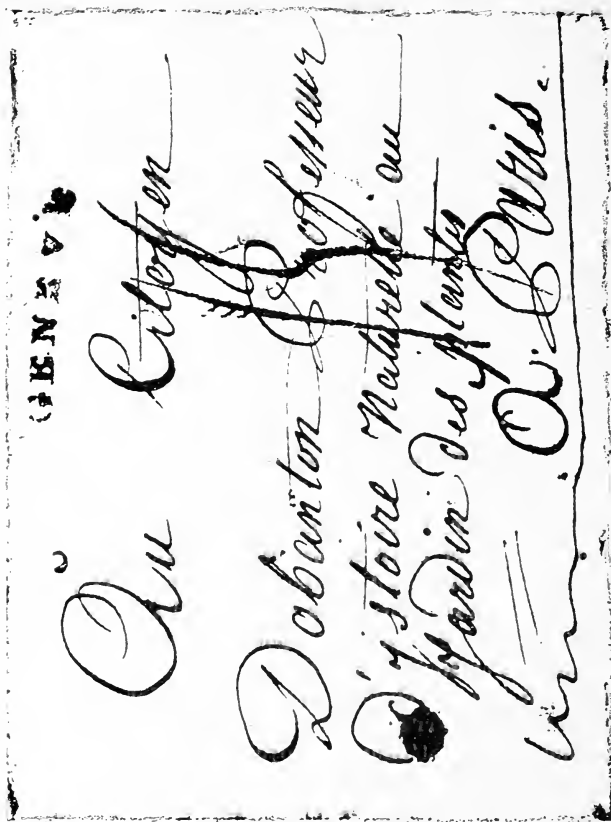 GENEVE
Au Citoyen
Dobanton Professeur
D'istoire Naturelle au
Jardin des plantes
A. Paris.